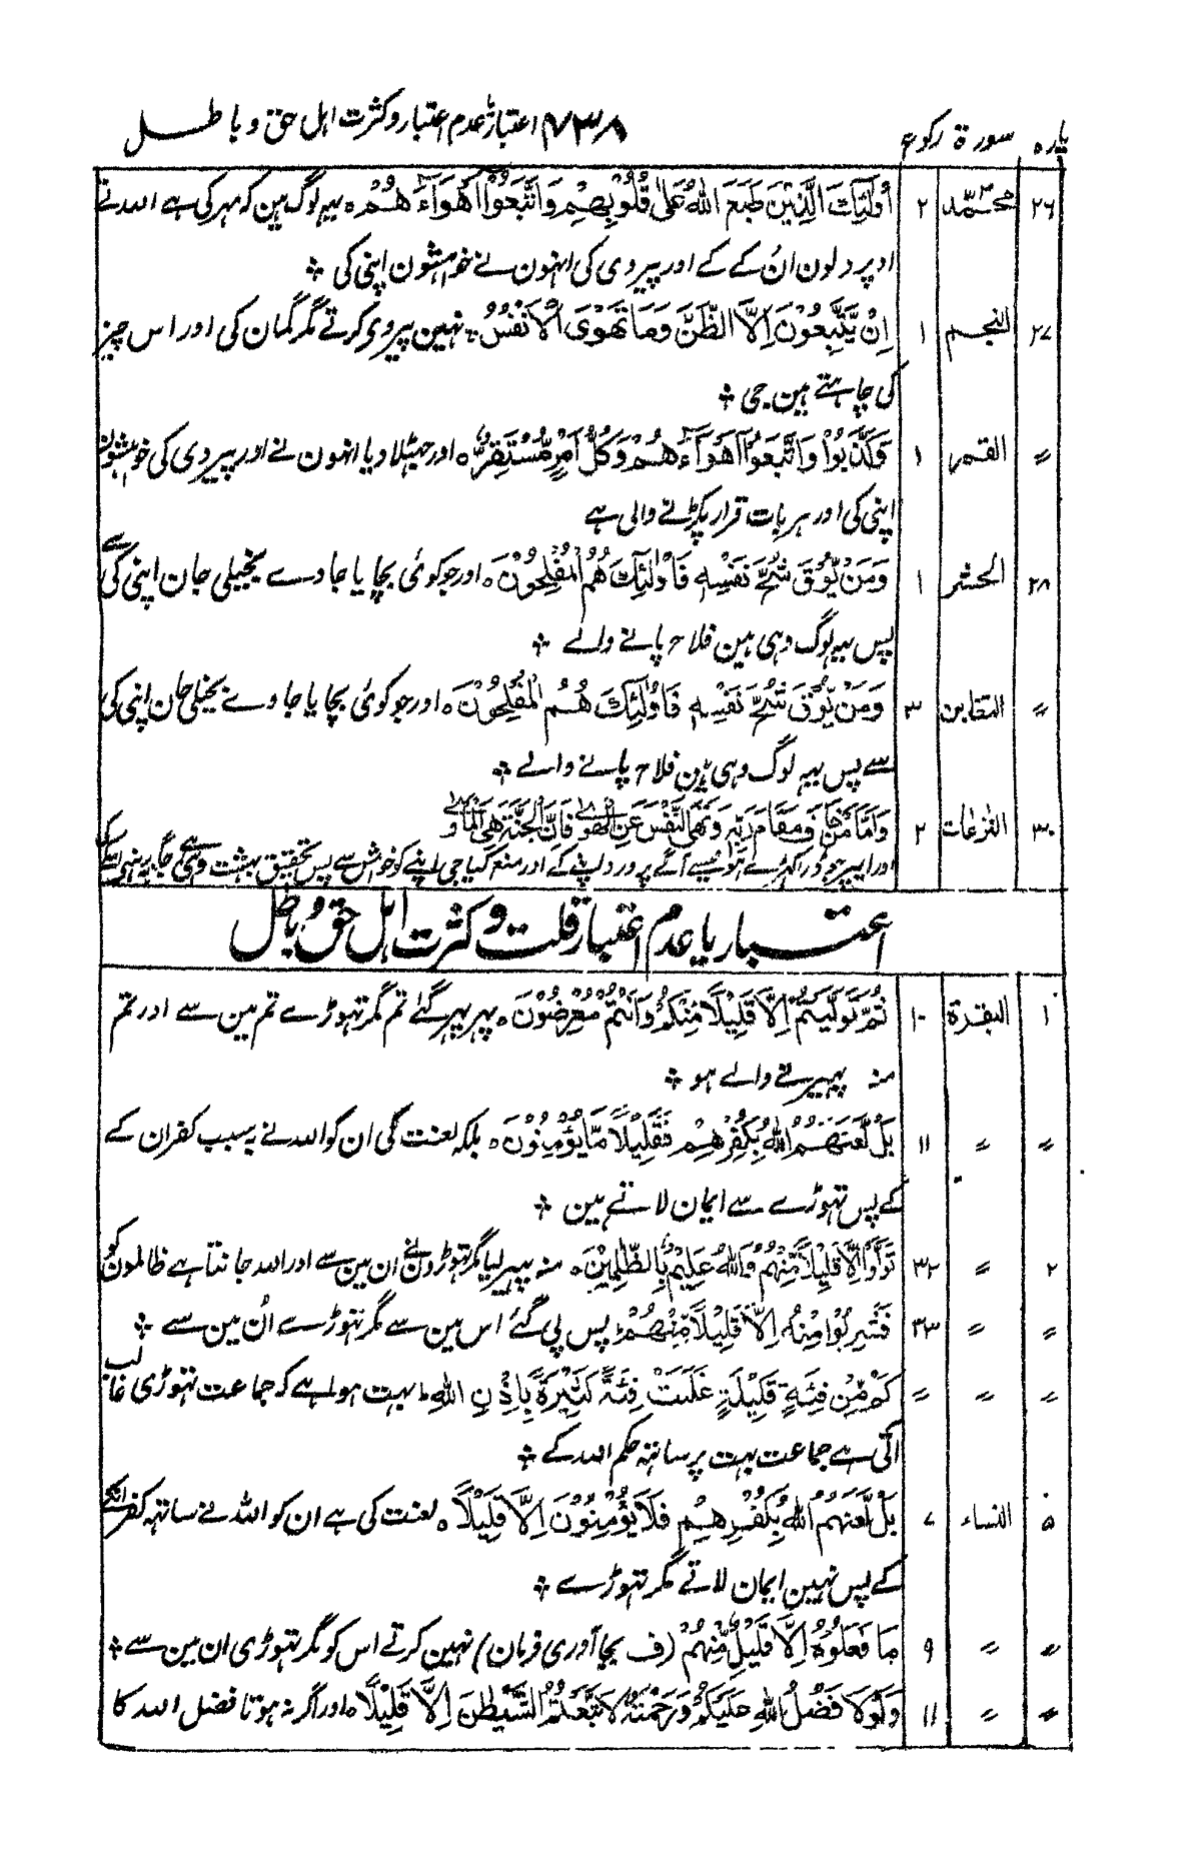 پارہ سورۃ رکوع ۷۳۸ اعتبار و عدم اعتبار و کثرت اہل حق و باطل
۲۶ محمد ۲ اُولٰٓئِكَ الَّذِيْنَ طَبَعَ اللّٰهُ عَلٰى قُلُوْبِهِمْ وَاتَّبَعُوْٓا اَهْوَآءَهُمْ ہ یہ لوگ ہین کہ مہر کی ہے اللہ نے
اوپر دلون اُن کے کے اور پیروی کی انہون نے خواہشون اپنی کی ⁘
۲۷ النجم ۱ اِنْ يَّتَّبِعُوْنَ اِلَّا الظَّنَّ وَمَا تَهْوَى الْاَنْفُسُ نہین پیروی کرتے مگر گمان کی اور اس چیز
کی چاہتے ہین جی ⁘
〃 القمر ۱ وَكَذَّبُوْا وَاتَّبَعُوْٓا اَهْوَآءَهُمْ وَكُلُّ اَمْرٍ مُّسْتَقِرٌّ ہ اور جھٹلادیا انہون نے اور پیروی کی خواہشون
اپنی کی اور ہر بات قرار پکڑنے والی ہے
۲۸ الحشر ۱ وَمَنْ يُّوْقَ شُحَّ نَفْسِهٖ فَاُولٰٓئِكَ هُمُ الْمُفْلِحُوْنَ ہ اور جو کوئی بچایا جاوے بخیلی جان اپنی کی سے
پس یہ لوگ وہی ہین فلاح پانے والے ⁘
〃 التغابن ۳ وَمَنْ يُّوْقَ شُحَّ نَفْسِهٖ فَاُولٰٓئِكَ هُمُ الْمُفْلِحُوْنَ ہ اور جو کوئی بچایا جاوے بخیلی جان اپنی کی
سے پس یہ لوگ وہی ہین فلاح پانے والے ⁘
۳۰ النزعٰت ۲ وَاَمَّا مَنْ خَافَ مَقَامَ رَبِّهٖ وَنَهَى النَّفْسَ عَنِ الْهَوٰى فَاِنَّ الْجَنَّةَ هِيَ الْمَاْوٰى
اور کھڑے ہونیسے آگے پروردگار اپنے کے اور منع کیا جی اپنے کو خواہش سے پس تحقیق بہشت وہی ہے جگہ رہنے
اعتبار یا عدم اعتبار قلت و کثرت اہل حق و باطل
۱ البقرۃ ۱۰ ثُمَّ تَوَلَّيْتُمْ اِلَّا قَلِيْلًا مِّنْكُمْ وَاَنْتُمْ مُّعْرِضُوْنَ ہ پہر پہر گئے تم مگر تہوڑے تم مین سے اور تم
منہ پھیرنے والے ہو ⁘
〃 〃 ۱۱ بَلْ لَّعَنَهُمُ اللّٰهُ بِكُفْرِهِمْ فَقَلِيْلًا مَّا يُؤْمِنُوْنَ ہ بلکہ لعنت کی ان کو اللہ نے بسبب کفر ان کے
کے پس تہوڑے سے ایمان لاتے ہین ⁘
۲ 〃 ۳۲ تَوَلَّوْا اِلَّا قَلِيْلًا مِّنْهُمْ وَاللّٰهُ عَلِيْمٌ بِالظّٰلِمِيْنَ ہ منہ پہیر لیا مگر تہوڑونے ان مین سے اور اللہ جانتا ہے ظالمون کو
〃 〃 ۳۳ فَشَرِبُوْا مِنْهُ اِلَّا قَلِيْلًا مِّنْهُمْ پس پی گئے اس مین سے مگر تہوڑے اُن مین سے ⁘
〃 〃 〃 كَمْ مِّنْ فِئَةٍ قَلِيْلَةٍ غَلَبَتْ فِئَةً كَثِيْرَةً بِاِذْنِ اللّٰهِ بہت ہوا ہے کہ جماعت تہوڑی غالب
آئی ہے جماعت بہت پر ساتہ حکم اللہ کے ⁘
۵ النساء ۷ بَلْ لَّعَنَهُمُ اللّٰهُ بِكُفْرِهِمْ فَلَا يُؤْمِنُوْنَ اِلَّا قَلِيْلًا ہ لعنت کی ہے ان کو اللہ نے ساتہ کفر انکے
کے پس نہین ایمان لاتے مگر تہوڑے ⁘
〃 〃 ۹ مَا فَعَلُوْهُ اِلَّا قَلِيْلٌ مِّنْهُمْ (ف بجا آوری فرمان) نہین کرتے اس کو مگر تہوڑی ان مین سے ⁘
〃 〃 ۱۱ وَلَوْلَا فَضْلُ اللّٰهِ عَلَيْكُمْ وَرَحْمَتُهٗ لَاتَّبَعْتُمُ الشَّيْطٰنَ اِلَّا قَلِيْلًا ہ اور اگر نہ ہوتا فضل اللہ کا